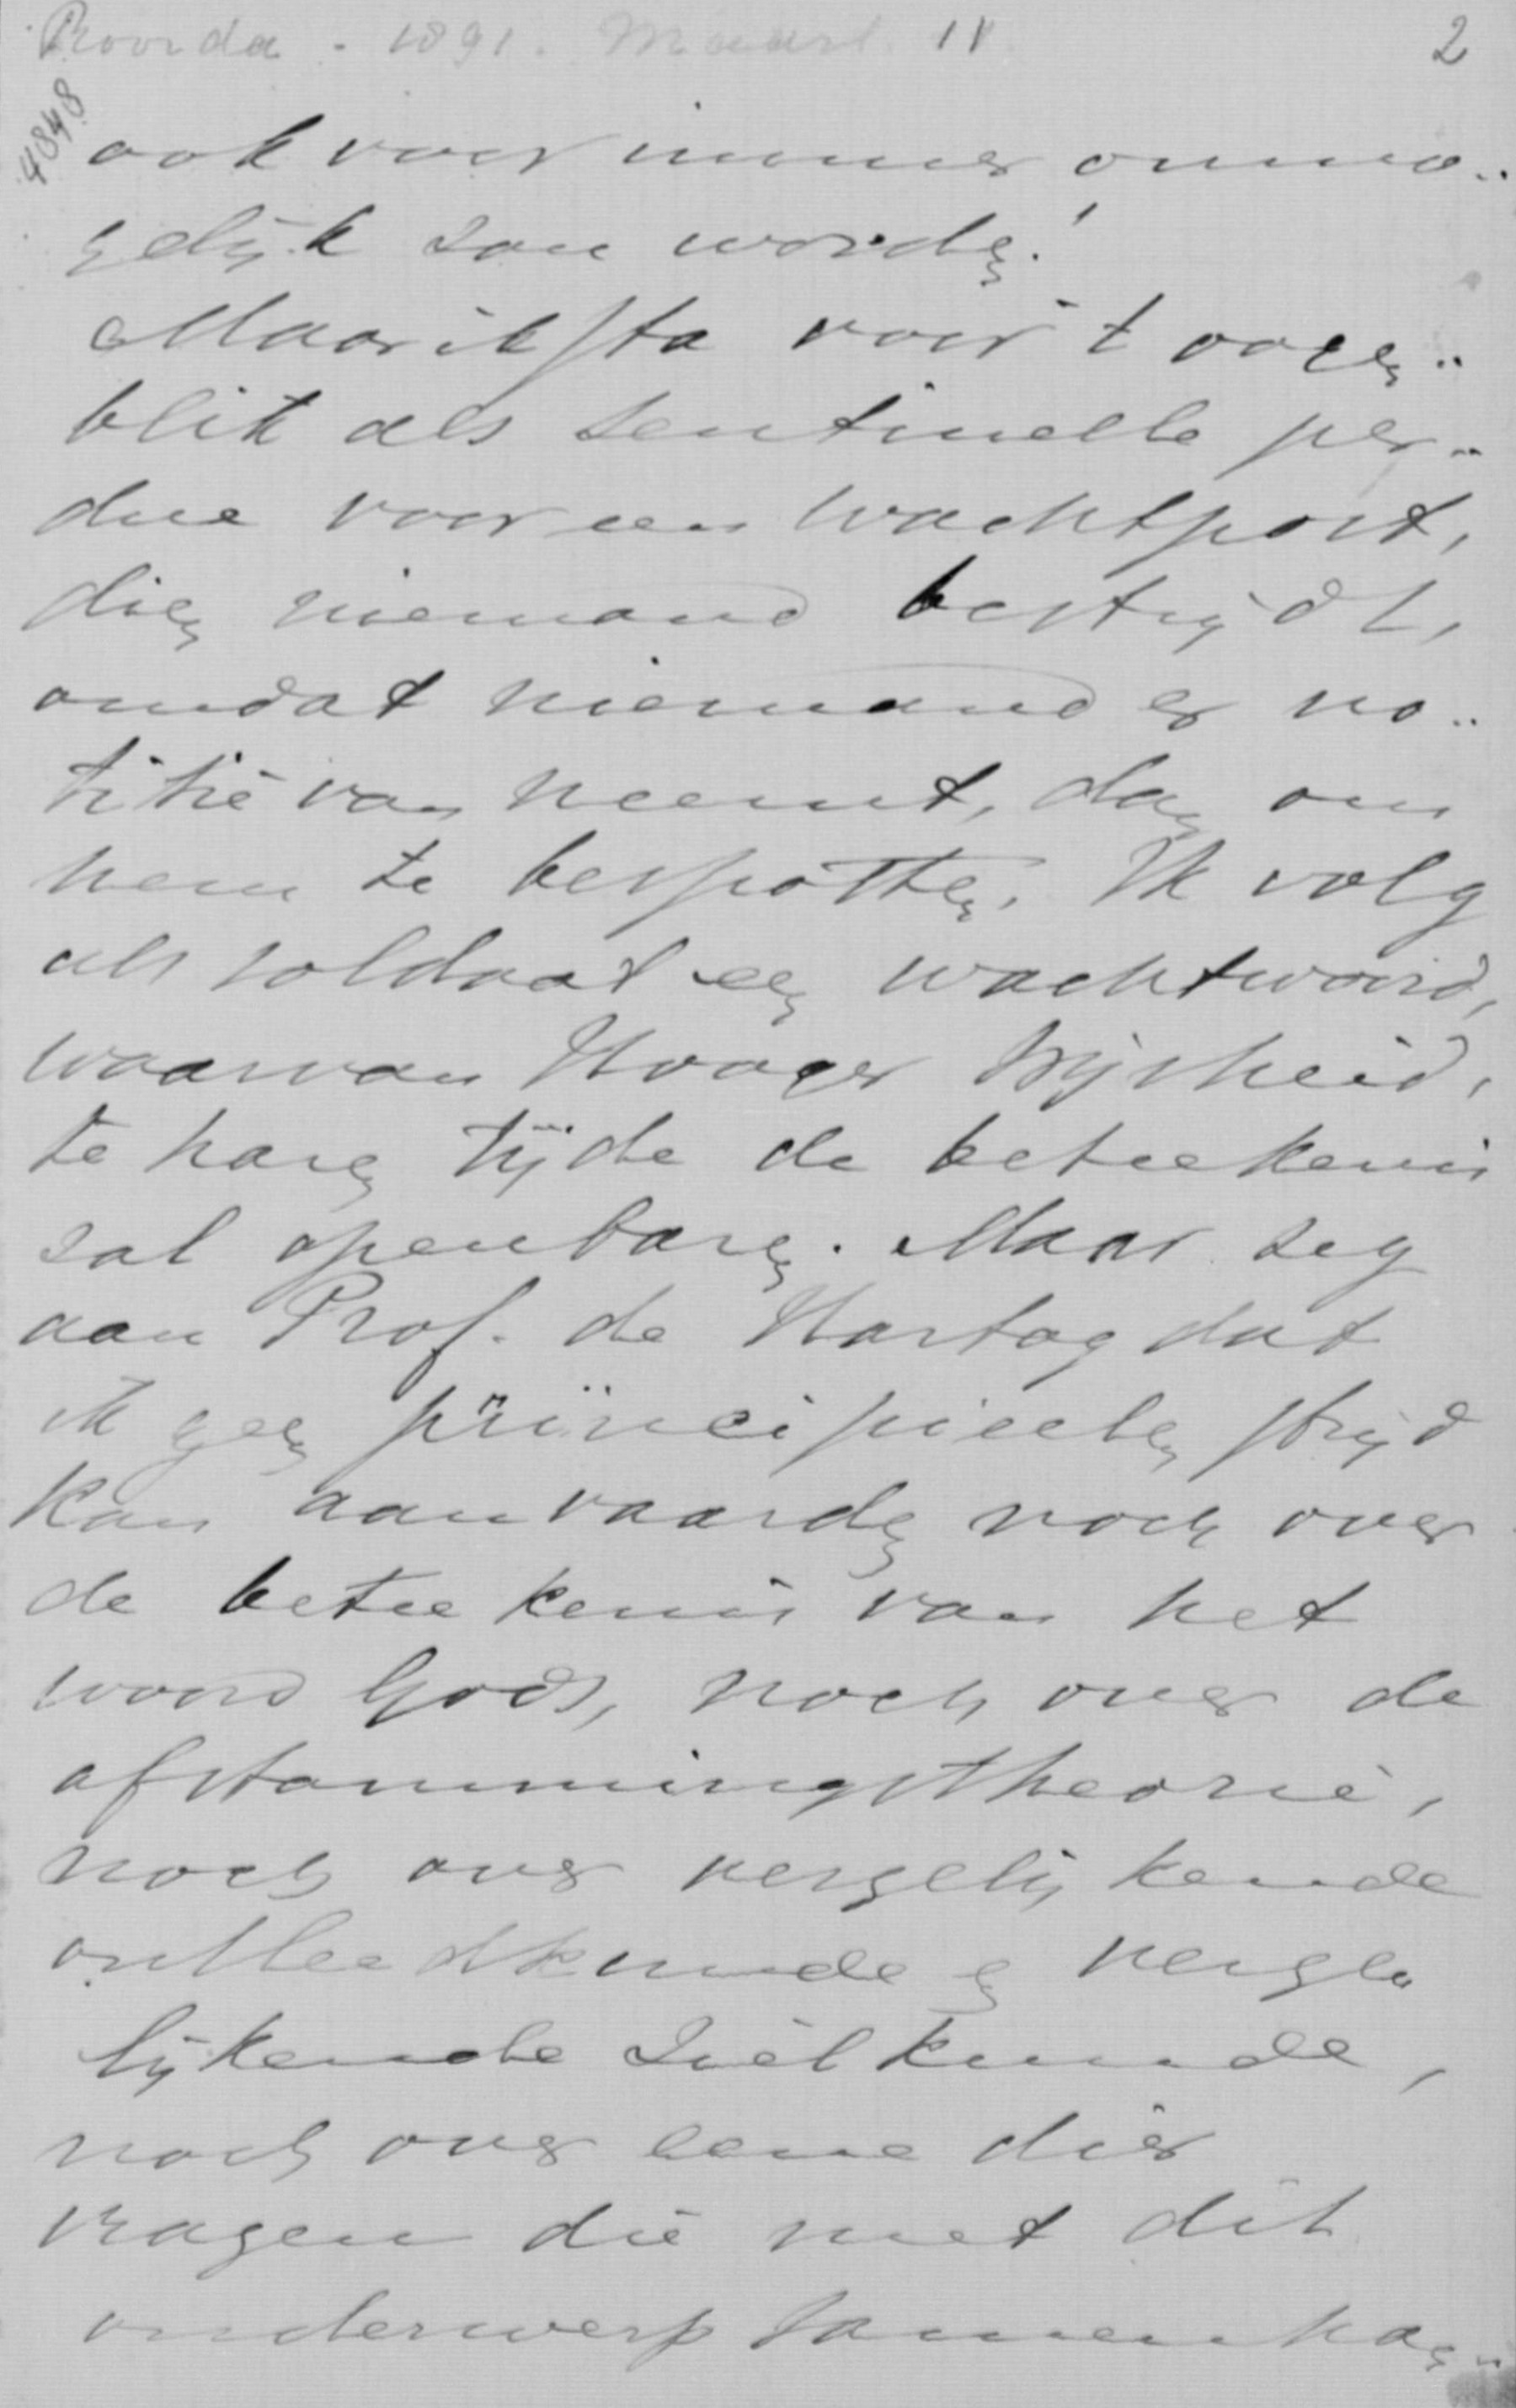 Roorda - 1891. Maart 11 2
4848
ook voor immer onmo..
gelijk sou worden!
Maar ik sta voor 't oogen..
blik als sentinelle per..
due voor een wachtpost,
dien niemand bestrijdt,
omdat niemand er no..
titie van neemt, dan om
hem te bespotten. Ik volg
als soldaat een wachtwoord,
waarvan Hooger Wijsheid,
te haren tijde de beteekenis
sal openbaren. Maar seg
aan Prof. de Hartog dat
ik geen principieelen strijd
kan aanvaarden noch over
de beteekenis van het
woord Gods, noch over de
afstammingstheorie,
noch over vergelijkende
ontleedkunde en verge
lijkende Zielkunde,
noch over eene dier
vragen die met dit
onderwerp samenhan..